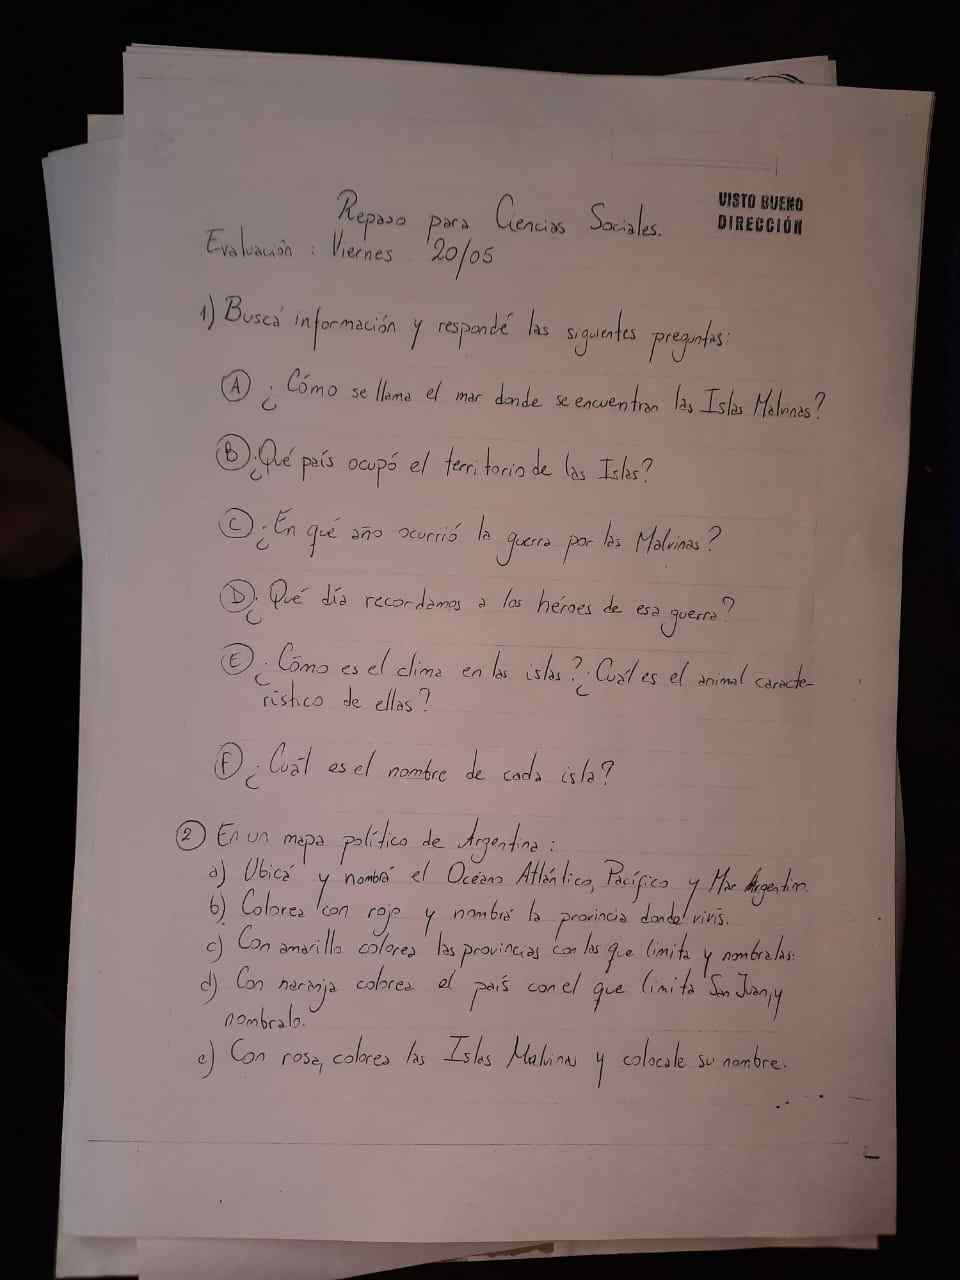 VISTO BUENO
DIRECCIÓN
Repaso para Ciencias Sociales.
Evaluación: Viernes 20/05
1) Buscá información y respondé las siguientes preguntas:
A ¿Cómo se llama el mar donde se encuentran las Islas Malvinas?
B ¿Qué país ocupó el territorio de las Islas?
C ¿En qué año ocurrió la guerra por las Malvinas?
D ¿Qué día recordamos a los héroes de esa guerra?
E ¿Cómo es el clima en las islas? ¿Cuál es el animal caracte-
rístico de ellas?
F ¿Cuál es el nombre de cada isla?
2 En un mapa político de Argentina:
a) Ubicá y nombrá el Océano Atlántico, Pacífico y Mar Argentino.
b) Colorea con rojo y nombrá la provincia donde vivís.
c) Con amarillo colorea las provincias con las que limita y nombralas.
d) Con naranja colorea el país con el que limita San Juan, y
nombralo.
e) Con rosa, colorea las Islas Malvinas y colocale su nombre.